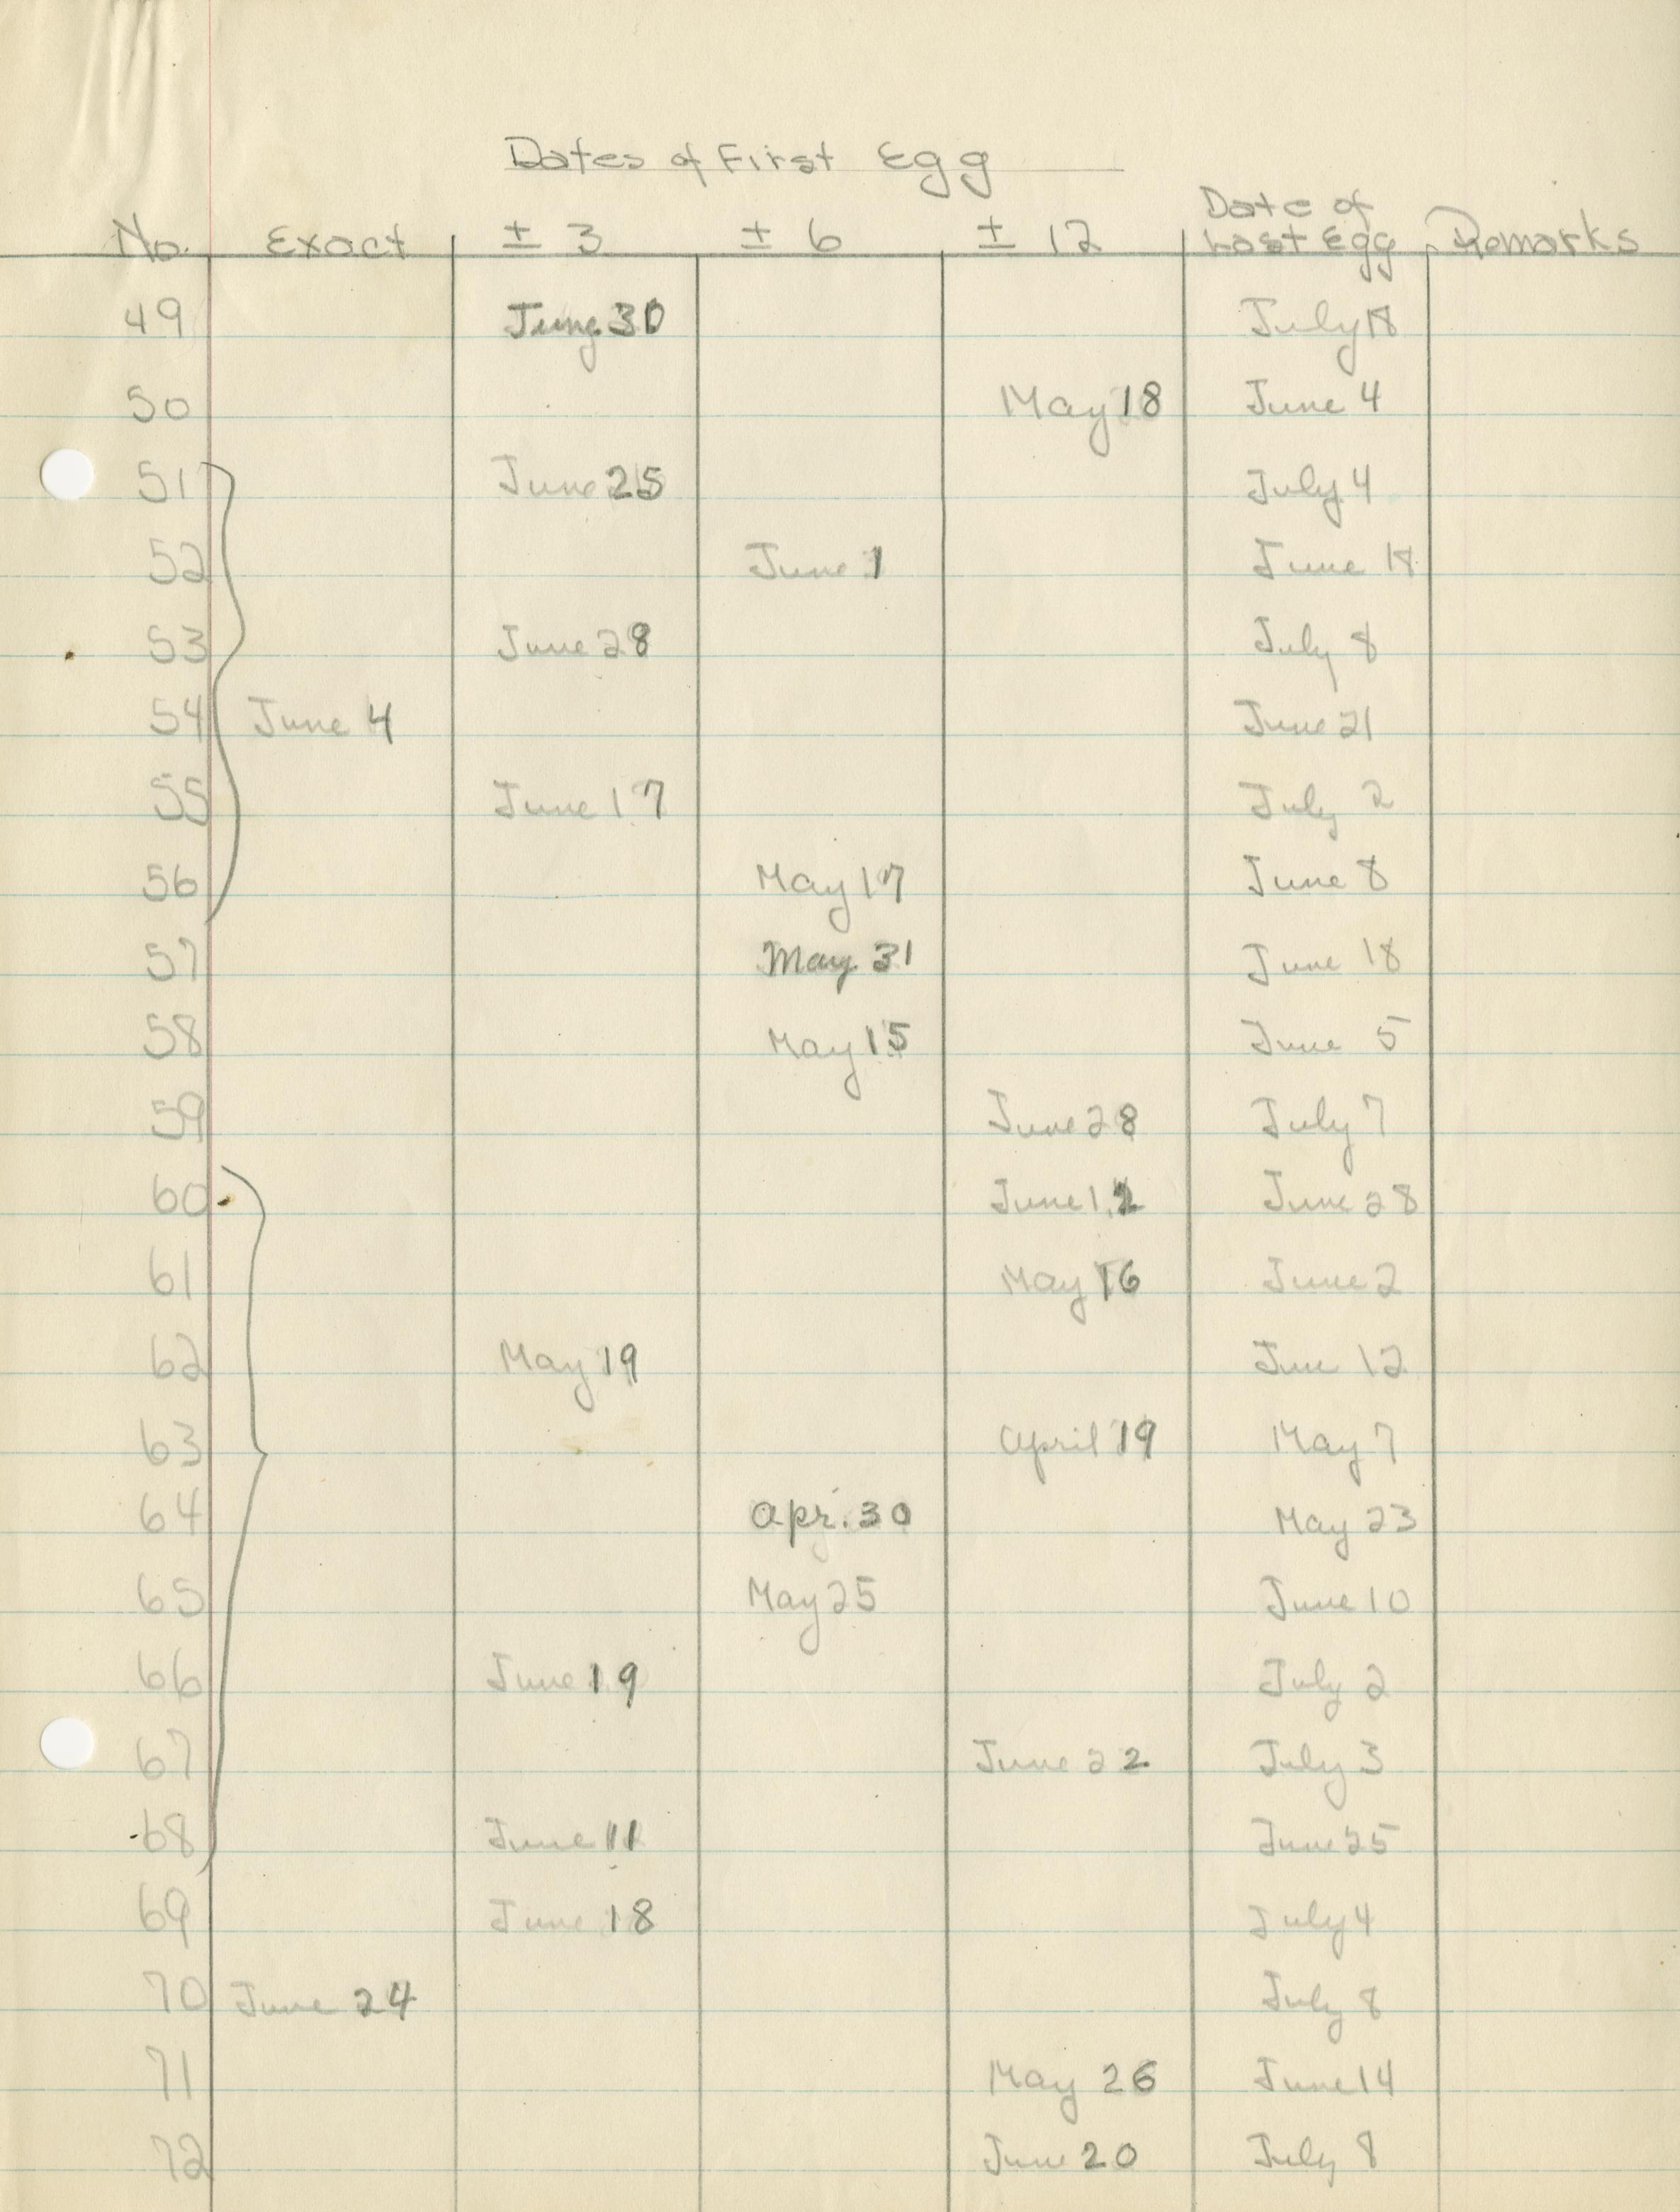 Dates of First Egg
No. Exact ± 3 ± 6 ± 12 Date of Last Egg Remarks
49 June 30 July 18
50 May 18 June 4
51 June 25 July 4
52 June 1 June 18
53 June 28 July 8
54 June 4 June 21
55 June 17 July 2
56 May 17 June 8
57 May 31 June 18
58 May 15 June 5
59 June 28 July 7
60 June 12 June 28
61 May 16 June 2
62 May 19 June 12
63 April 19 May 7
64 Apr. 30 May 23
65 May 25 June 10
66 June 19 July 2
67 June 22 July 3
68 June 11 June 25
69 June 18 July 4
70 June 24 July 8
71 May 26 June 14
72 June 20 July 8